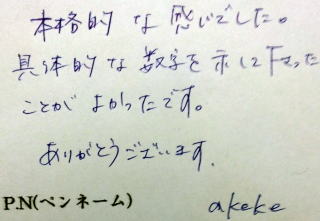 本格的な感じでした。
具体的な数字を示して下さった
ことがよかったです。
ありがとうございます.
P.N(ペンネーム) akeke